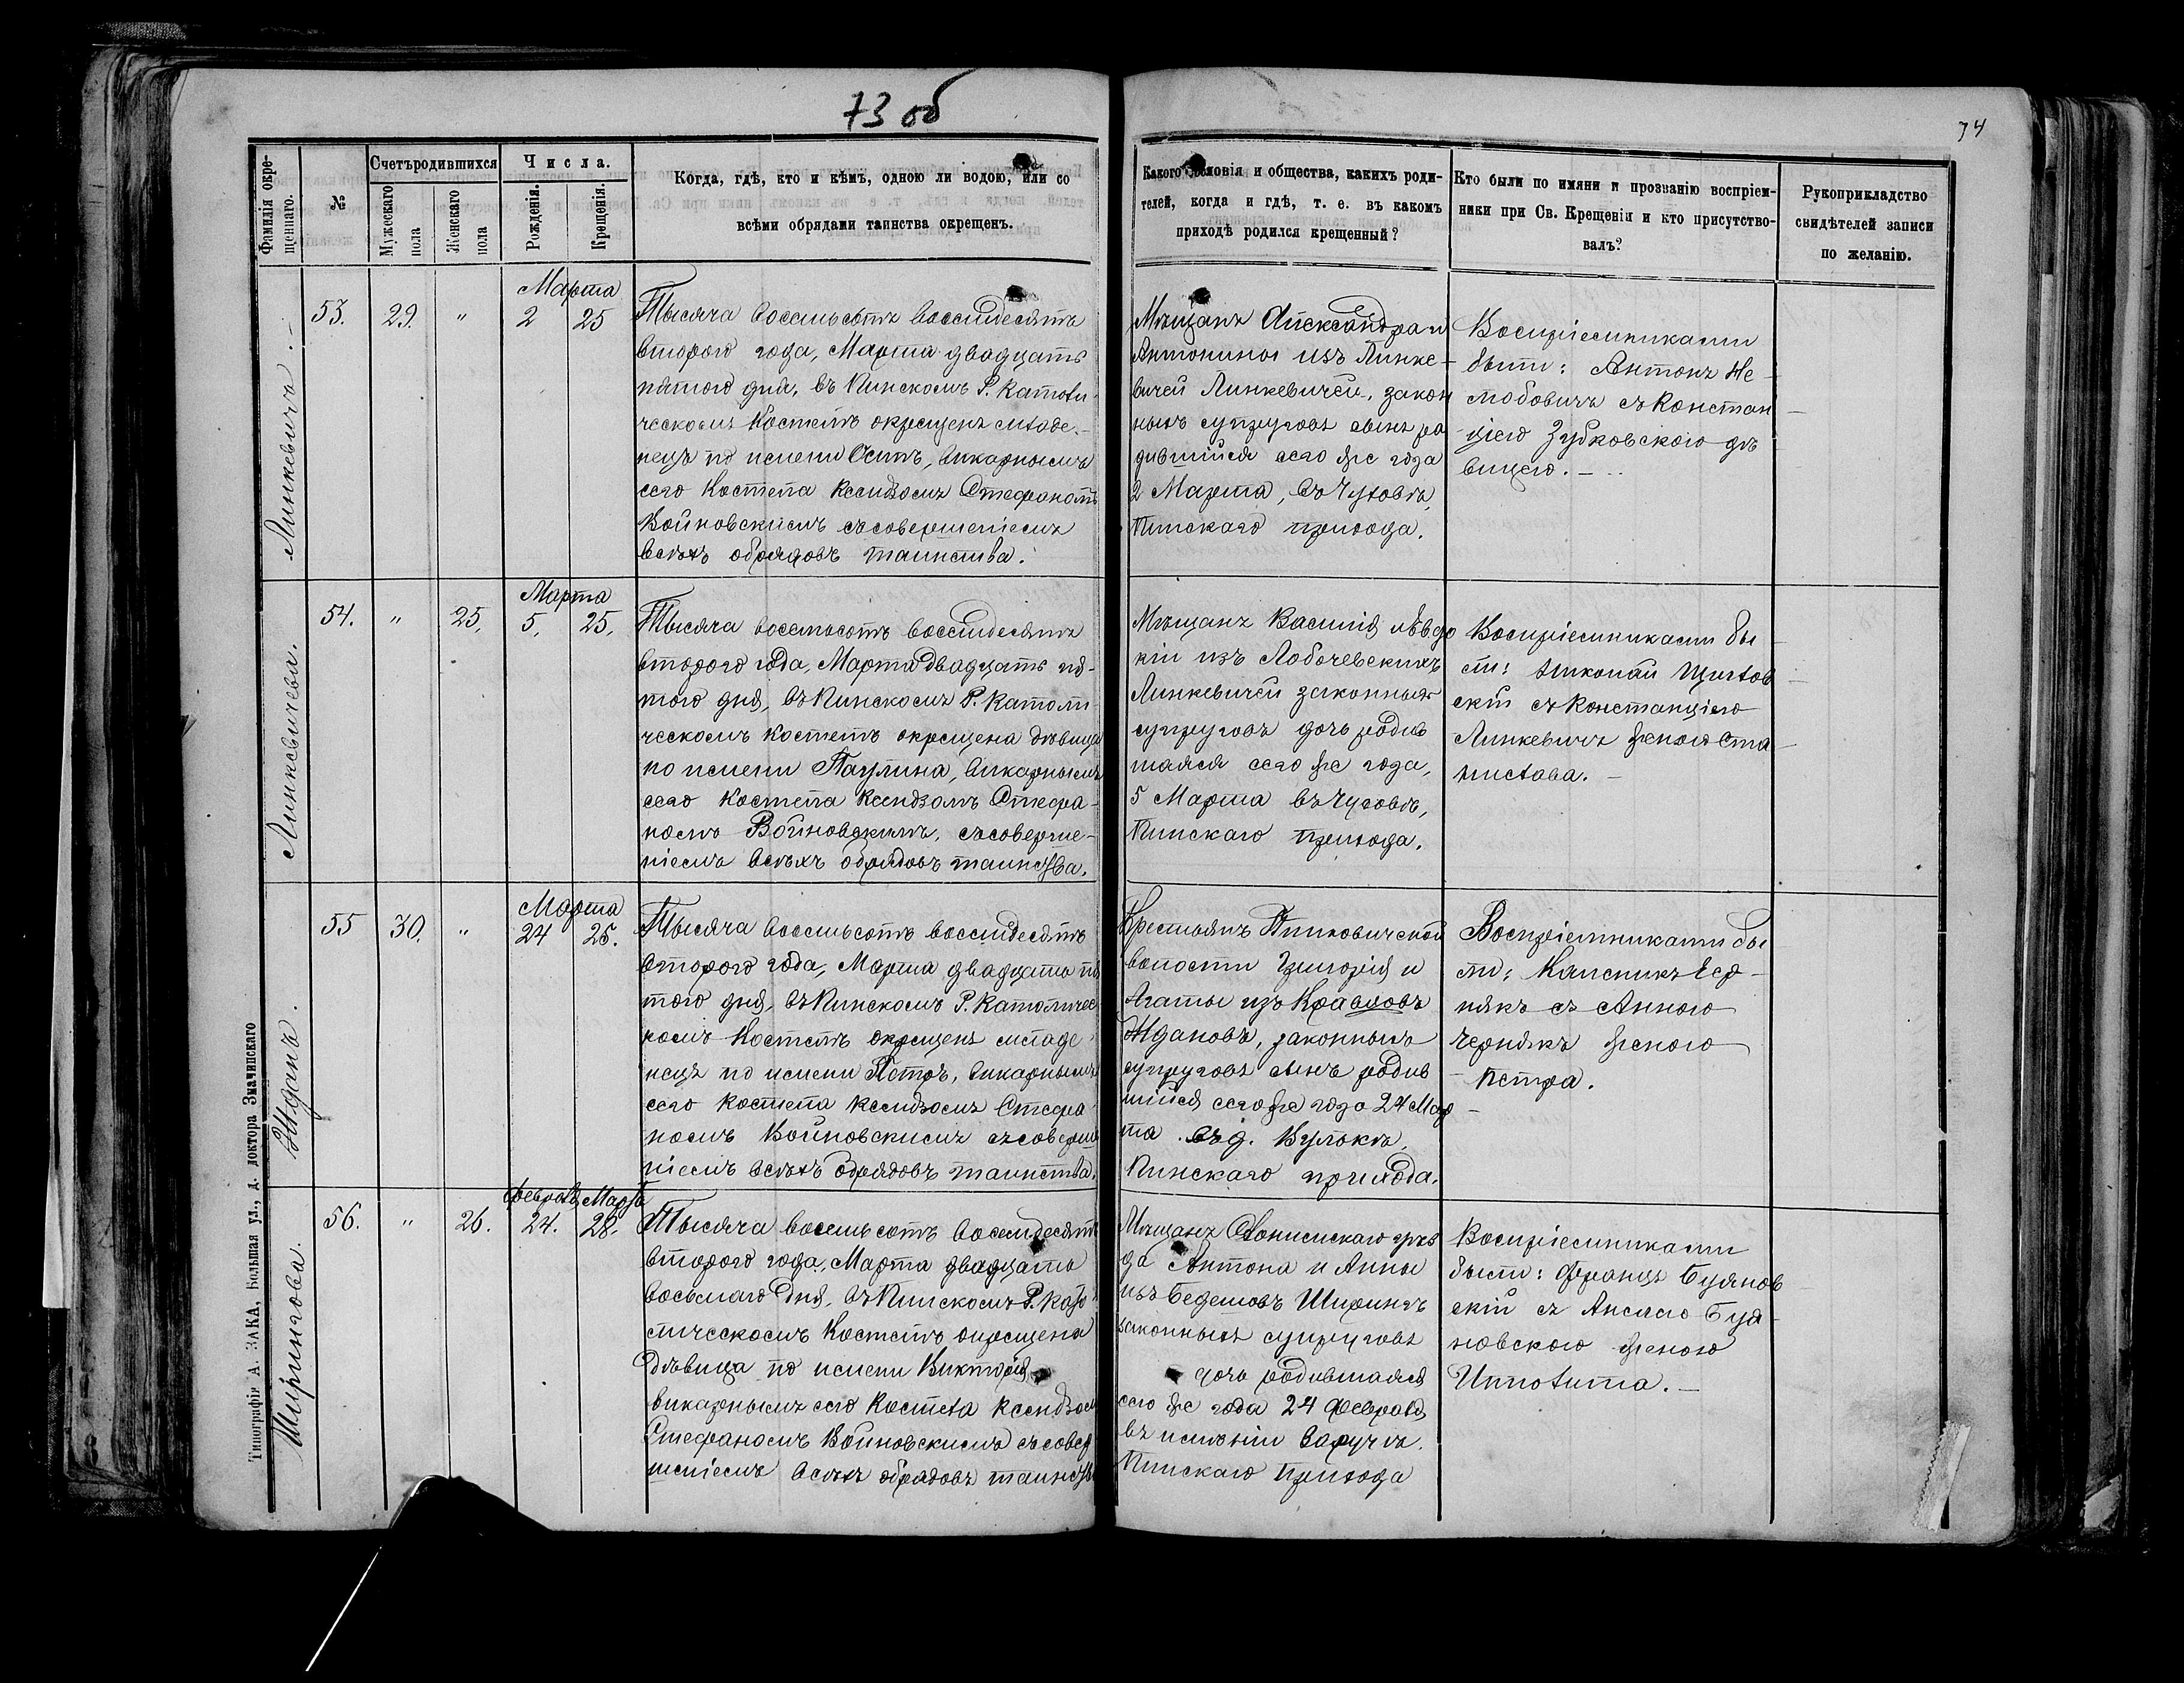 73 об
74
Фамилія окре-
щеннаго.
№
Счетъ родившихся
Мужескаго
пола
Женскаго
пола
Числа.
Рожденія.
Крещенія.
Когда, гдѣ, кто и кѣмъ, одною ли водою, или со
всѣми обрядами таинства окрещенъ.
Какого условія и общества, какихъ роди-
телей, когда и гдѣ, т. е. въ какомъ
приходѣ родился крещенный?
Кто были по имяни и прозванію воспріем-
ники при Св. Крещеніи и кто присутство-
валъ?
Рукоприкладство
свидѣтелей записи
по желанію.
Линкевичъ.
53.
29.
"
Марта
2 25
Тысяча восемьсотъ восемдесятъ
второго года, Марта двадцать
пятого дня, въ Пинскомъ Р. Католи-
ческомъ Костелѣ окрещенъ младе-
нецъ по имени Осипъ, викарнымъ
сего Костела Ксендзомъ Стефаномъ
Войновскимъ съ совершеніемъ
всѣхъ обрядовъ таинства.
Мѣщанъ Александра и
Антонины изъ Линке-
вичей Линкевичей, закон
ныхъ супруговъ сынъ ро
дившійся сего же года
2 Марта, въ Чуховѣ,
Пинскаго прихода.
Воспріемниками
были: Антонъ Не-
любовичъ съ Констан
ціею Зубковскою дѣ
вицею.
Линкевичева.
54.
"
25.
Марта
5. 25.
Тысяча восемьсотъ восемдесятъ
второго года, Марта двадцать пя-
того дня, въ Пинскомъ Р. Католи-
ческомъ Костелѣ окрещена дѣвица
по имени Паулина, викарнымъ
сего Костела Ксендзомъ Стефа-
номъ Войновскимъ, съ соверше-
ніемъ всѣхъ обрядовъ таинства.
Мѣщанъ Василія и Евдо
кіи изъ Лобачевскихъ
Линкевичей законныхъ
супруговъ дочь родив
шаяся сего же года,
5 Марта въ Чуховѣ,
Пинскаго прихода.
Воспріемниками бы
ли: Николай
скій съ Констанціею
Линкевичъ женою Ста-
нислава.
Жданъ.
55
30.
"
Марта
24 25.
Тысяча восемьсотъ восемдесятъ
второго года, Марта двадцать пя
того дня, въ Пинскомъ Р. Католичес
комъ Костелѣ окрещенъ младе
нецъ по имени Петръ, викарнымъ
сего Костела Ксендзомъ Стефа
номъ Войновскимъ съ соверше
ніемъ всѣхъ обрядовъ таинства.
Крестьянъ Пинковичской
волости Григорія и
Агаты изъ Кравцовъ
Ждановъ, законныхъ
супруговъ сынъ родив
шійся сего же года 24 Мар
та въ д. Кулакѣ,
Пинскаго прихода.
Воспріемниками бы
ли:
някъ съ Анною
Чернякъ женою
Петра.
Ширингова.
56.
"
26.
Февраля Марта
24. 28.
Тысяча восемьсотъ восемдесятъ
второго года, Марта двадцать
восьмаго дня, въ Пинскомъ Р. Като
лическомъ Костелѣ окрещена
дѣвица по имени Викторія
викарнымъ сего Костела Ксендзом
Стефаномъ Войновскимъ съ совер
шеніемъ всѣхъ обрядовъ таинства
Мѣщанъ Слонимскаго уѣз
да Антона и Анны
изъ Ширингъ
законныхъ супруговъ
дочь родившаяся
сего же года 24 Февраля
въ имѣніи Заручѣ.
Пинскаго прихода
Воспріемниками
были: Францъ Буянов
скій съ Буя-
новскою женою
Ипполита.
Типографія А. ЗАКА, Большая ул., д. доктора Значинскаго